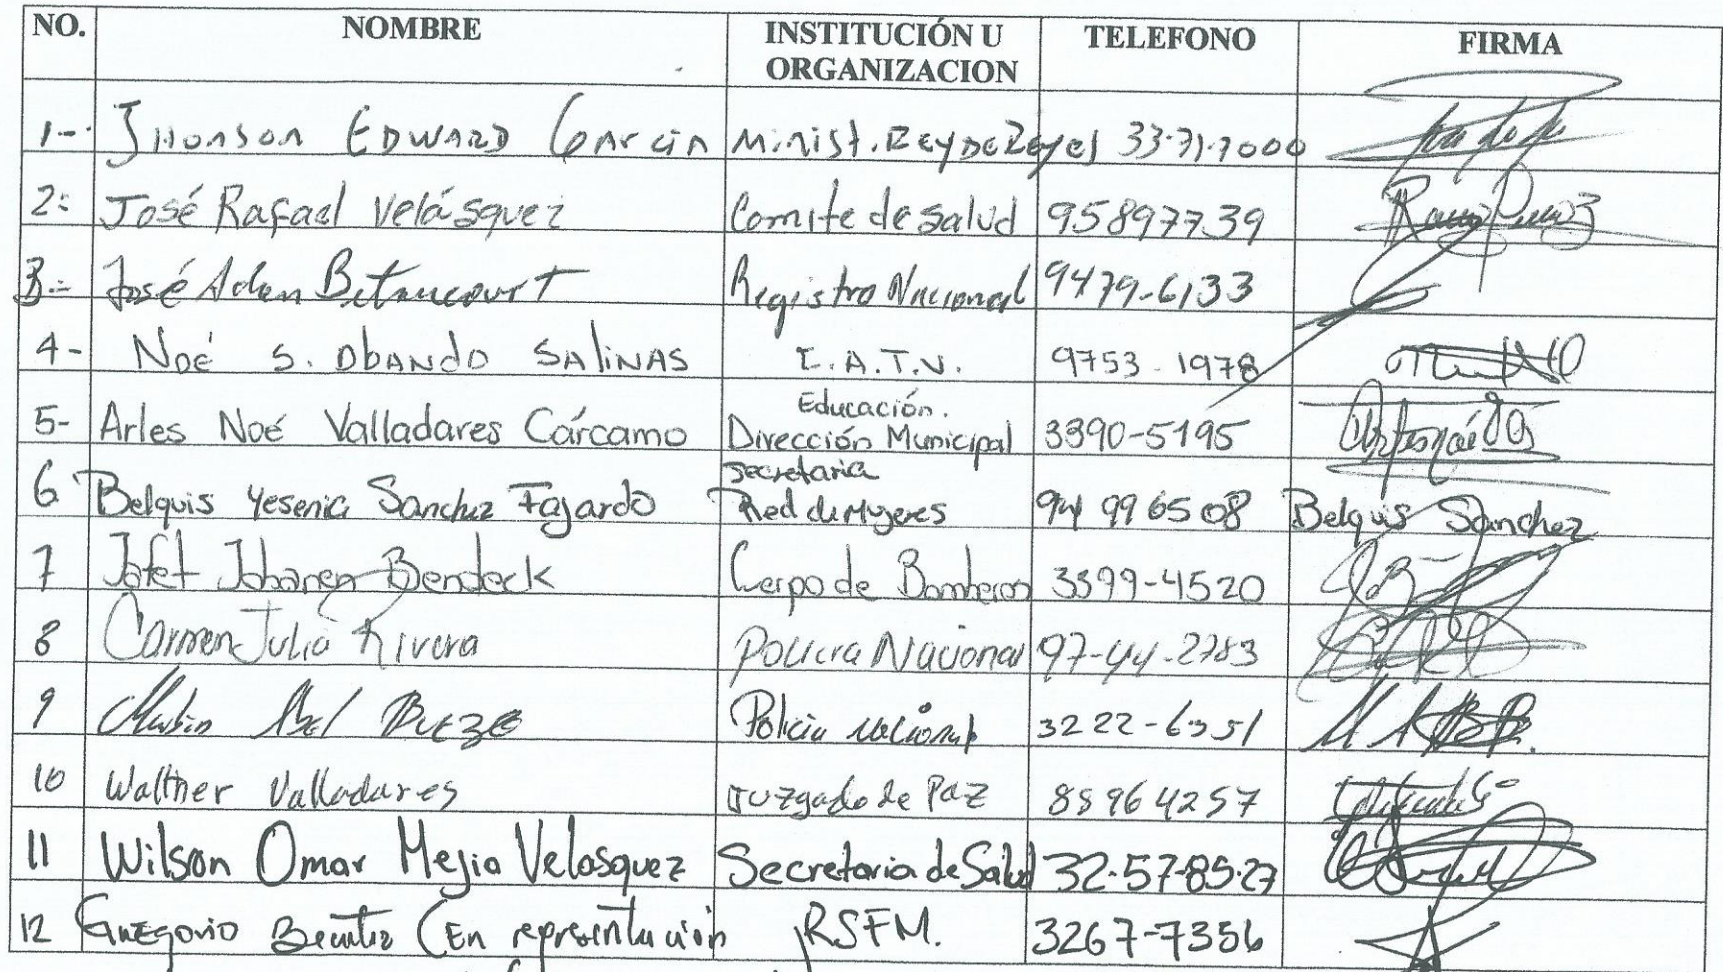 NO. NOMBRE INSTITUCIÓN U ORGANIZACION TELEFONO FIRMA
1-. Jhonson EDWARD Garcia Minist. Rey De Reyes 33-71-7000
2: José Rafael Velásquez Comite de salud 95897739
3.- José Adan Betancourt Registro Nacional 9479-6133
4- Noé S. Obando Salinas 9753-1978
5- Arles Noé Valladares Cárcamo Educación. Dirección Municipal 3390-5195
6 Belquis Yesenia Sanchez Fajardo secretaria Red de Mujeres 94 99 65 08 Belquis Sanchez
7 Jafet Bendeck Cerpo de Bomberos 3399-4520
8 Carmen Julia Rivera Policia Nacional 97-44-2783
9 Abel Policia nacional 3222-6351
10 Walther Valladares Juzgado de Paz 88964257
11 Wilson Omar Mejia Velasquez Secretaria de Salud 32-57-85-27
12 Gregorio (En representacion RSFM. 3267-7356